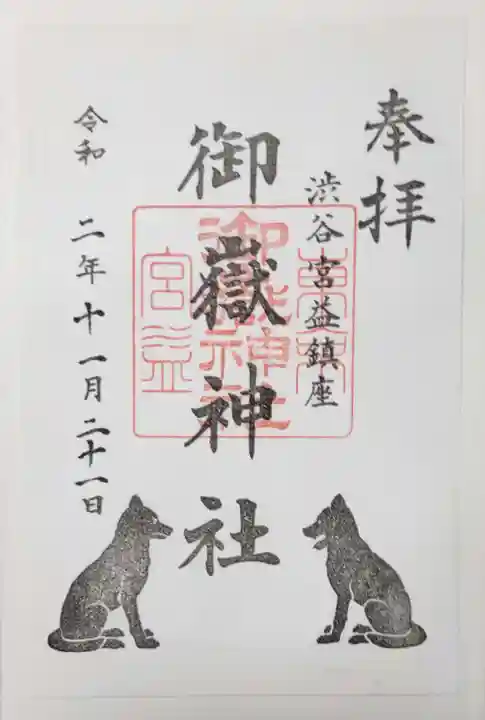 奉拝
渋谷宮益鎮座
御嶽神社
令和 二年十一月二十一日
東京
御嶽神社
宮益